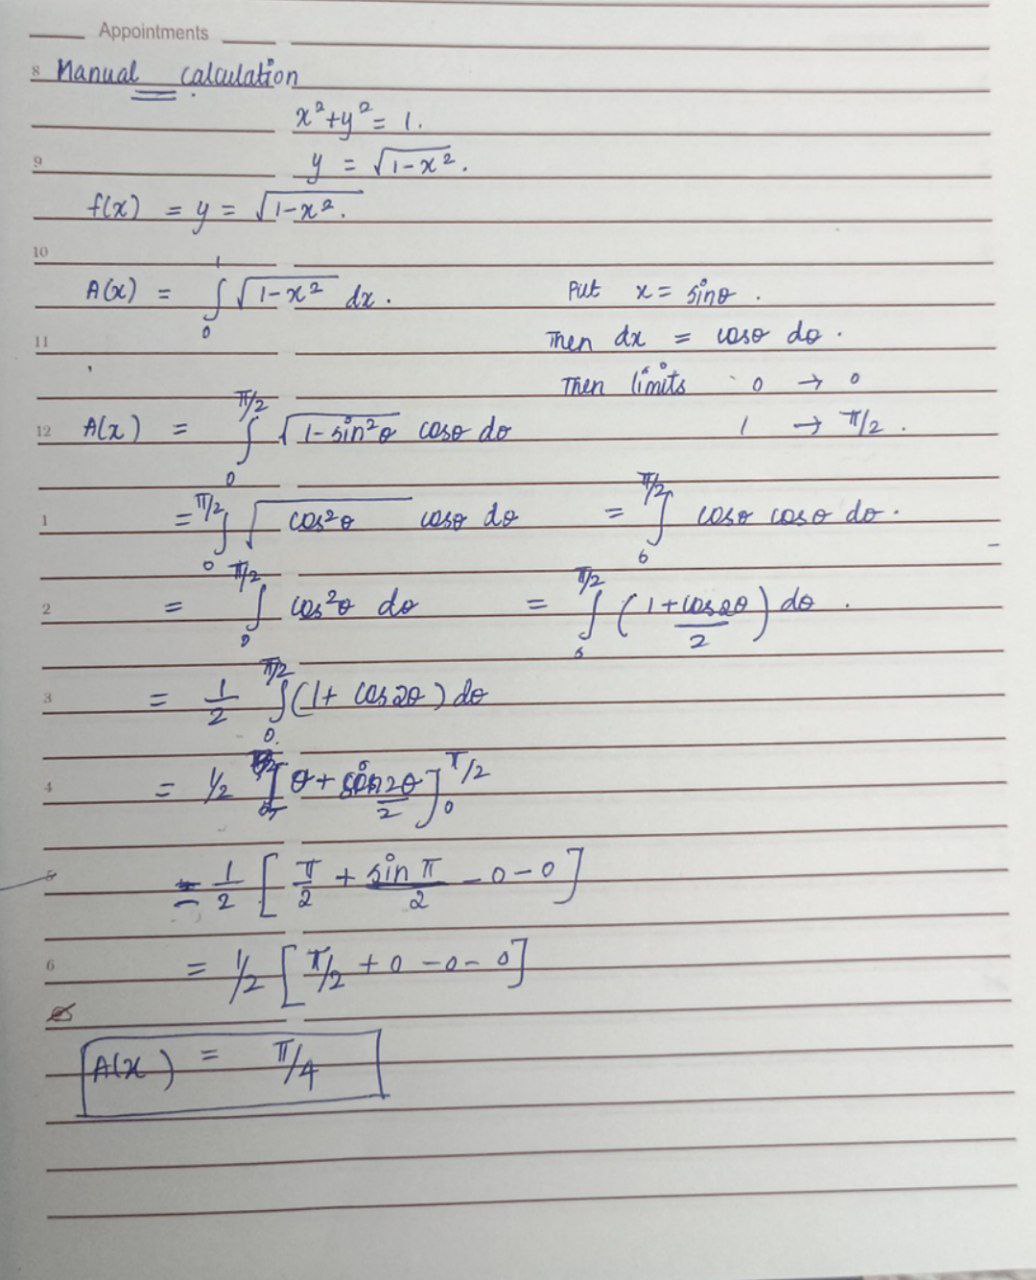 Appointments
8 Manual calculation
x²+y² = 1.
9 y = √1-x².
f(x) = y = √1-x².
10
A(x) = ∫₀¹ √1-x² dx. Put x = sinθ.
11 Then dx = cosθ dθ.
Then limits 0 → 0
12 A(x) = ∫₀^π/2 √1-sin²θ cosθ dθ 1 → π/2.
1 = ∫₀^π/2 √cos²θ cosθ dθ = ∫₀^π/2 cosθ cosθ dθ.
2 = ∫₀^π/2 cos²θ dθ = ∫₀^π/2 (1+cos2θ/2) dθ.
3 = 1/2 ∫₀^π/2 (1+ cos2θ) dθ
4 = 1/2 [θ + sin2θ/2]₀^π/2
5 = 1/2 [π/2 + sin π/2 - 0 - 0]
6 = 1/2 [π/2 + 0 - 0 - 0]
A(x) = π/4